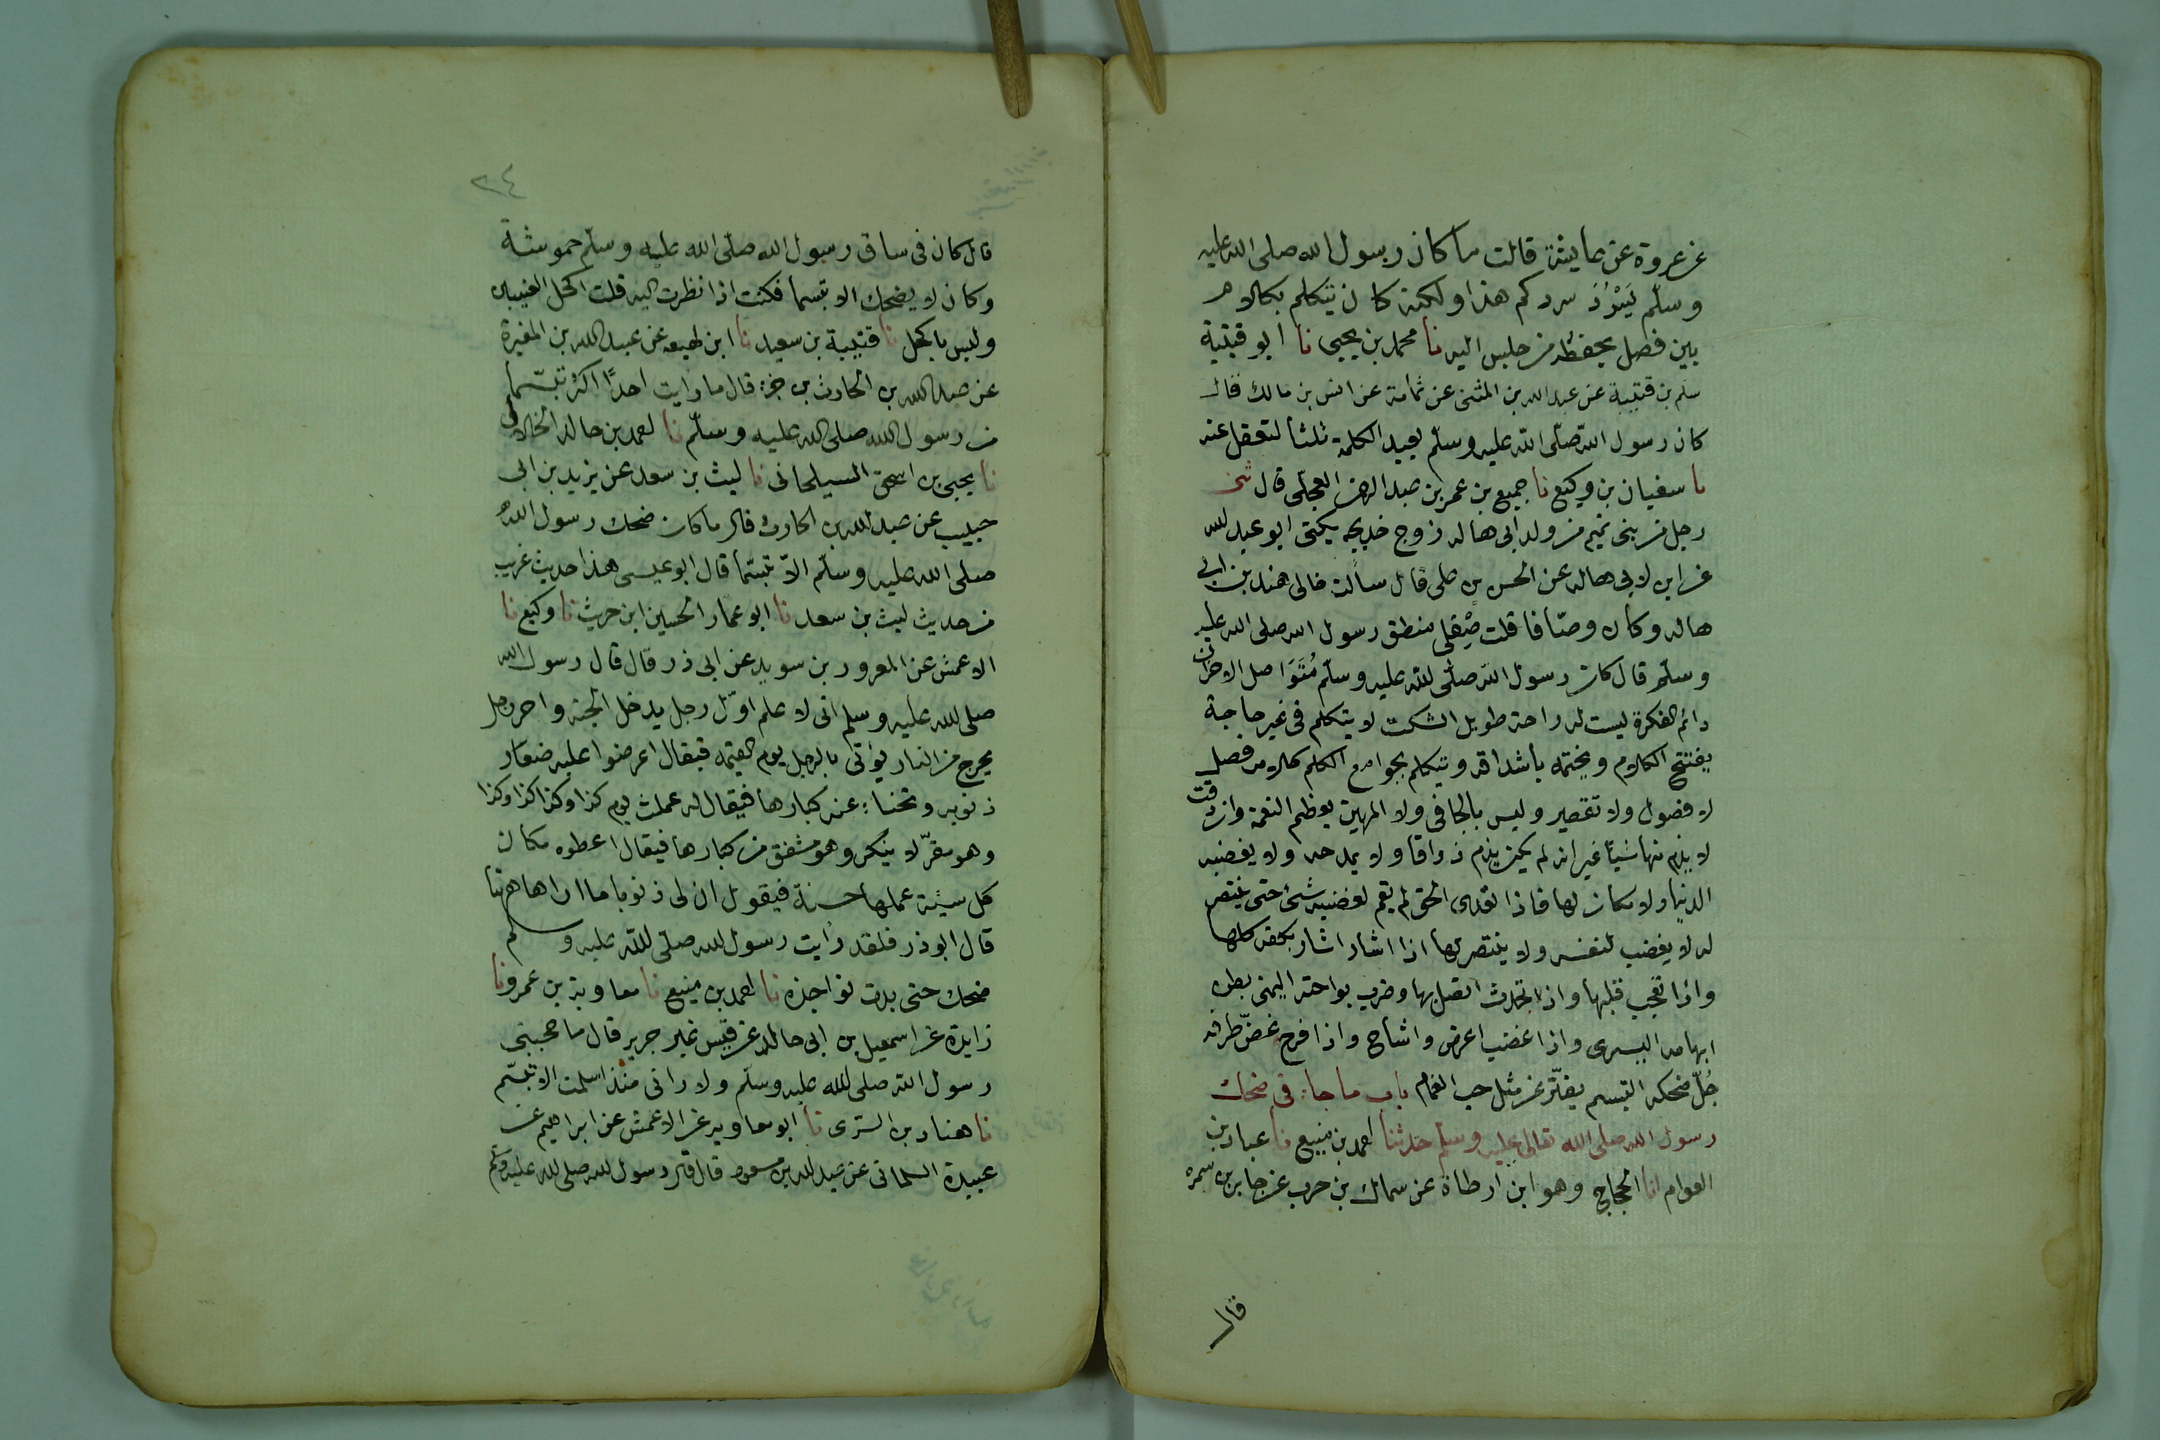 عن عروة عن عايشة قالت ما كان رسول الله صلى الله عليه
وسلّم يَسْرُدُ سردكم هذا ولكنه كان يتكلم بكلام
بين فصل يحفظه من جلس اليه نا محمد بن يحيى نا ابو قتيبة
سلم بن قتيبة عن عبد الله بن المثنى عن ثمامة عن انس بن مالك قال
كان رسول الله صلّى الله عليه وسلّم يعيد الكلمة ثلثا لتعقل عنه
نا سفيان بن وكيع نا جميع بن عمر بن عبد الرحمن العجلى قال ثنى
رجل من بنى تميم من ولد ابى هاله زوج خديجه يكنى ابو عبد لله
عن ابن لابى هاله عن الحسن بن على قال سألت خالى هند بن ابى
هاله وكان وصّافا قلت صِفْ لى منطق رسول الله صلى الله عليه
وسلّم قال كان رسول الله صلّى الله عليه وسلّم مُتَوَاصل الاحزان
دائم الفكرة ليست له راحة طويل السكت لا يتكلم فى غير حاجة
يفتتح الكلام ويختمه بأشداقه ويتكلم بجوامع الكلم كلامه فصل
لا فضول ولا تقصير وليس بالجافى ولا المهين يعظم النعمة وان دقت
لا يذم منها شيئا غير انه لم يكن يذم ذواقا ولا يمدحه ولا يغضبه
الدنيا ولا ما كان لها فاذا تعدى الحق لم يقم لغضبه شئ حتى ينتصر
له لا يغضب لنفسه ولا ينتصر لها اذا اشار اشار بكفه كلها
واذا تعجب قلبها واذا تحدث اتصل بها وضرب براحته اليمنى بطن
ابهامه اليسرى واذا غضب اعرض واشاح واذا فرح غضّ طرفه
جُلّ ضحكه التبسم يفترّ عن مثل حب الغمام باب ما جاء فى ضحك
رسول الله صلى الله تعالى عليه وسلم حدثنا احمد بن منيع نا عباد بن
العوام انا الحجاج وهو ابن ارطاة عن سماك بن حرب عن جابر بن سمرة
قال
٢٤
قال كان فى ساق رسول الله صلّى الله عليه وسلّم حموشة
وكان لا يضحك الا تبسما فكنت اذا نظرت اليه قلت اكحل العينين
وليس باكحل نا قتيبة بن سعيد نا ابن لهيعه عن عبيد الله بن المغيرة
عن عبد الله بن الحارث بن جزء قال ما رايت احدًا اكثر تبسّما
من رسول الله صلى الله عليه وسلّم نا احمد بن خالد الخلال
نا يحيى بن اسحق السيلحانى نا ليث بن سعد عن يزيد بن ابى
حبيب عن عبد الله بن الحارث قال ما كان ضحك رسول الله
صلى الله عليه وسلّم الاّ تبسّما قال ابو عيسى هذا حديث غريب
من حديث ليث بن سعد نا ابو عمار الحسين ابن حريث نا وكيع نا
الاعمش عن المعرور بن سويد عن ابى ذر قال قال رسول الله
صلى الله عليه وسلم انى لاعلم اوّل رجل يدخل الجنة واخر رجل
يخرج من النار يؤتى بالرجل يوم القيمه فيقال اعرضوا عليه صغار
ذنوبه وتخبا عنه كبارها فيقال له عملت يوم كذا وكذا كذا وكذا
وهو مقرّ لا ينكر وهو مشفق من كبارها فيقال اعطوه مكان
كل سيئة عملها حسنة فيقول ان لى ذنوبا ما اراها ههنا
قال ابو ذر فلقد رايت رسول الله صلّى الله عليه وسلم
ضحك حتى بدت نواجذه نا احمد بن منيع نا معاوية بن عمرو نا
زايدة عن اسمعيل بن ابى خالد عن قيس عن جرير قال ما حجبنى
رسول الله صلى الله عليه وسلّم ولا رانى منذ اسلمت الا تبسّم
نا هناد بن السّرى نا ابو معاويه عن الاعمش عن ابراهيم عن
عبيدة السلمانى عن عبد الله بن مسعود قال قال رسول الله صلى الله عليه وسلم